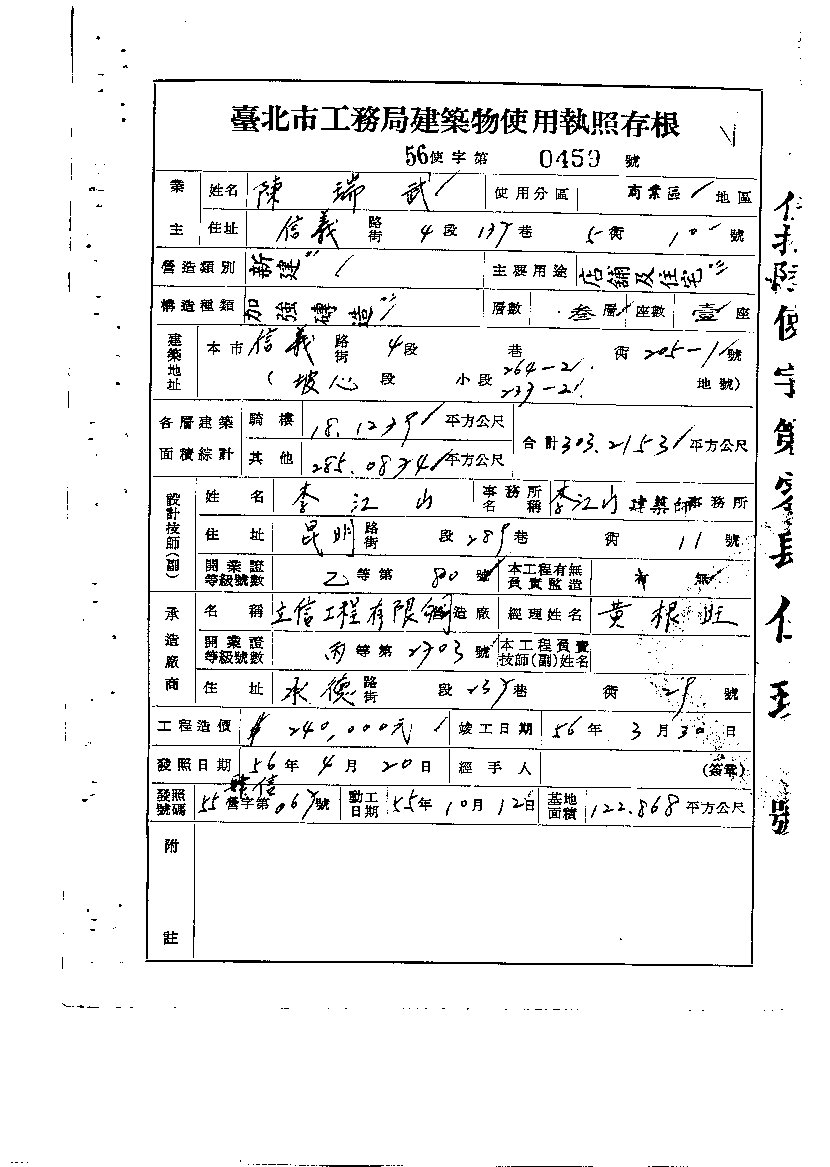 臺北市工務局建築物使用執照存根
56使字第 0459 號
業主 姓名 陳瑞武 使用分區 商業區 地區
住址 信義 路街 4段 137巷 5衖 10號
營造類別 新建 主要用途 店舖及住宅
構造種類 加強磚造 層數 叁層 座數 壹座
建築地址 本市 信義 路街 4段 巷 衖 205-1號
(坡心段 小段 264-2 237-2 地號)
各層建築面積綜計 騎樓 18.1279 平方公尺 合計 303.2153 平方公尺
其他 285.0874 平方公尺
設計技師(副) 姓名 李江山 事務所名稱 李江山建築師事務所
住址 昆明 路街 段 289巷 衖 11號
開業證等級號數 乙等第 80號 本工程有無負責監造 有 無
承造廠商 名稱 立信工程有限 營造廠 經理姓名 黃根旺
開業證等級號數 丙等第 2703號 本工程負責技師(副)姓名
住址 承德 路街 段 237巷 衖 29號
工程造價 $240,000元 竣工日期 56年 3月 30日
發照日期 56年 4月 20日 經手人 (簽章)
發照號碼 55營字第 067號 動工日期 55年 10月 12日 基地面積 122.868 平方公尺
附註
使字第
號